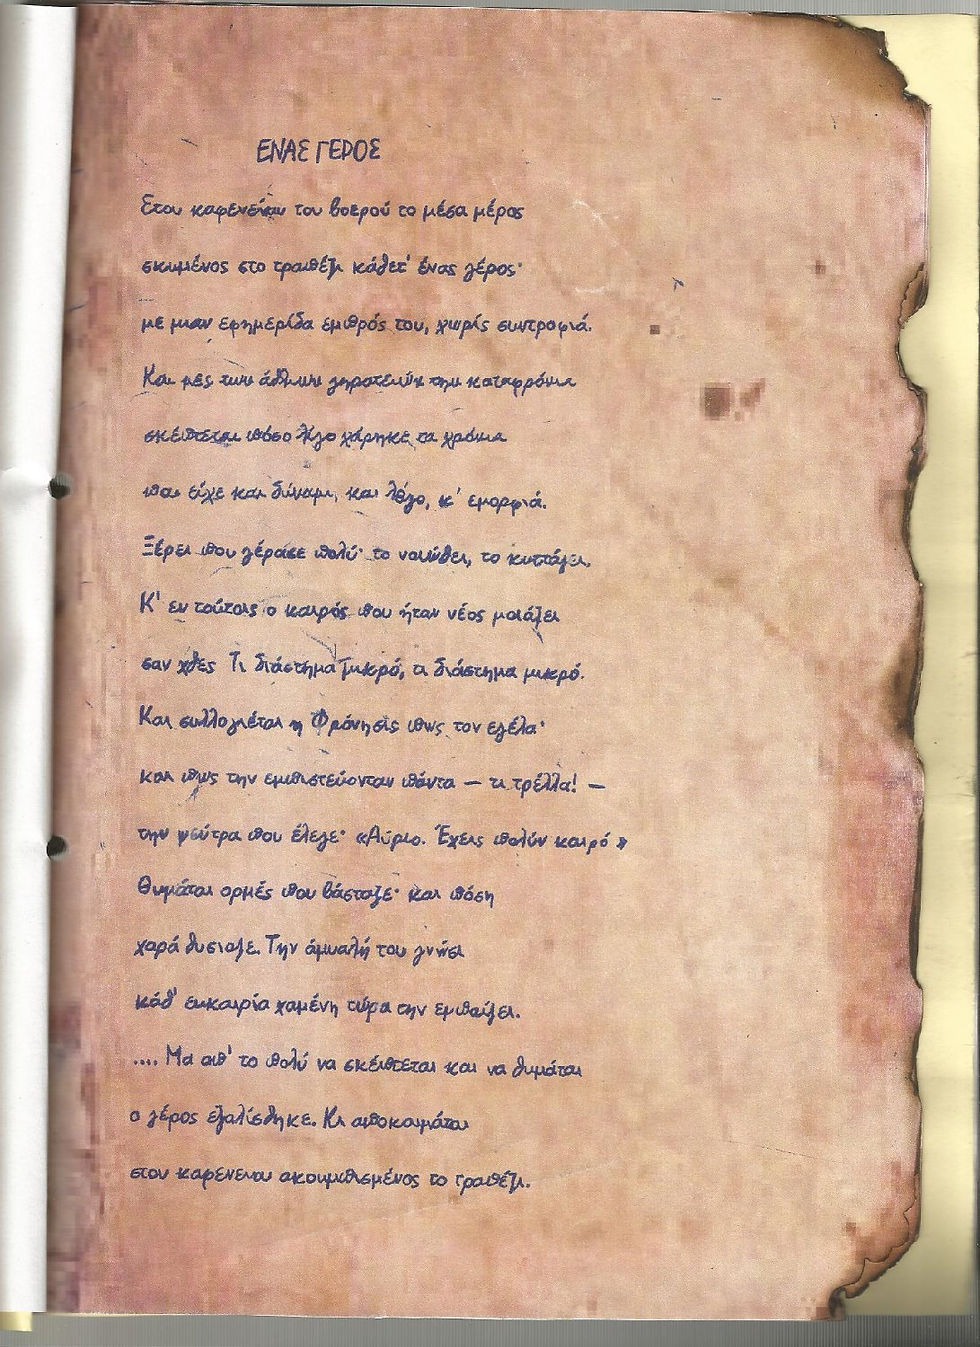 ΕΝΑΣ ΓΕΡΟΣ
Στου καφενείου του βοερού το μέσα μέρος
σκυμένος στο τραπέζι κάθετ' ένας γέρος·
με μιαν εφημερίδα εμπρός του, χωρίς συντροφιά.
Και μες των άθλιων γηρατειών την καταφρόνια
σκέπτεται πόσο λίγο χάρηκε τα χρόνια
που είχε και δύναμι, και λόγο, κ' εμορφιά.
Ξέρει που γέρασε πολύ· το νοιώθει, το κυττάζει.
Κ' εν τούτοις ο καιρός που ήταν νέος μοιάζει
σαν χθες Τι διάστημα μικρό, τι διάστημα μικρό.
Και συλλογιέται η Φρόνησις πως τον εγέλα·
και πως την εμπιστεύονταν πάντα — τι τρέλλα! —
την ψεύτρα που έλεγε· «Αύριο. Έχεις πολύν καιρό »
Θυμάται ορμές που βάσταζε· και πόση
χαρά θυσίαζε. Την άμυαλή του γνώσι
κάθ' ευκαιρία χαμένη τώρα την εμπαίζει.
.... Μα απ' το πολύ να σκέπτεται και να θυμάται
ο γέρος εζαλίσθηκε. Κι αποκοιμάται
στου καφενείου ακουμπισμένος το τραπέζι.